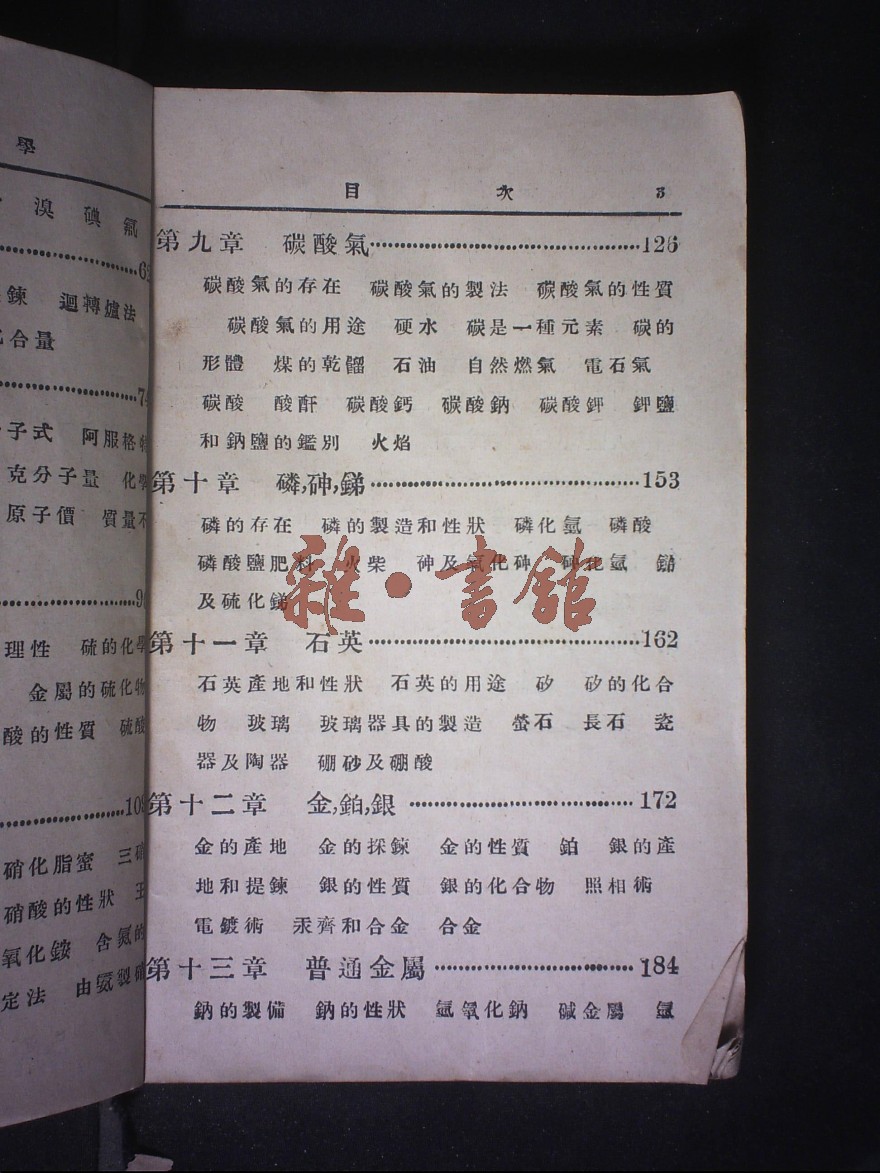 學
溴 碘 氟
鍊 迴轉爐法
合量
子式 阿服格
克分子量 化學
原子價 質量不
理性 硫的化學
金屬的硫化物
酸的性質 硫酸
硝化脂蜜 三硝
硝酸的性狀 王
氧化銨 含氮的
定法 由氨製硝
目 次 3
第九章 碳酸氣……………………126
碳酸氣的存在 碳酸氣的製法 碳酸氣的性質
碳酸氣的用途 硬水 碳是一種元素 碳的
形體 煤的乾餾 石油 自然燃氣 電石氣
碳酸 酸酐 碳酸鈣 碳酸鈉 碳酸鉀 鉀鹽
和鈉鹽的鑑別 火焰
第十章 磷,砷,銻……………………153
磷的存在 磷的製造和性狀 磷化氫 磷酸
磷酸鹽肥料 火柴 砷及氧化砷 砷化氫 銻
及硫化銻
雜·書館
第十一章 石英……………………162
石英產地和性狀 石英的用途 矽 矽的化合
物 玻璃 玻璃器具的製造 螢石 長石 瓷
器及陶器 硼砂及硼酸
第十二章 金,鉑,銀……………………172
金的產地 金的採鍊 金的性質 鉑 銀的產
地和提鍊 銀的性質 銀的化合物 照相術
電鍍術 汞齊和合金 合金
第十三章 普通金屬……………………184
鈉的製備 鈉的性狀 氫氧化鈉 鹼金屬 氫